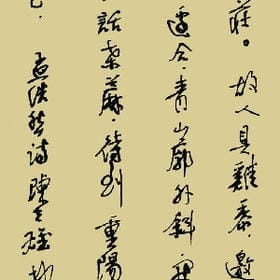 莊。故人具雞黍，邀
邊合，青山廓外斜，開
話桑麻，待到重陽
孟浩然詩 陳